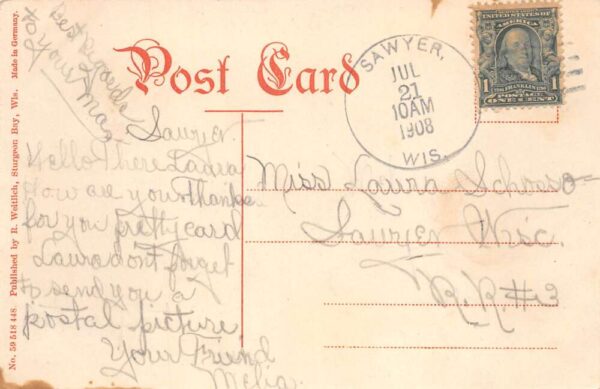 Best regards
to your Ma
Post Card
SAWYER,
JUL
21
10AM
1908
WIS.
UNITED STATES OF AMERICA
1
FRANKLIN
POSTAGE
ONE CENT
1
Sawyer
Hello There Laura
How are you. Thanks
for you pretty card
Laura dont forget
to send you a
postal picture
Your Friend
Melia.
Miss Laura
Sawyer Wisc.
R.R. #3
No. 59 518 448. Published by R. Weitlich, Sturgeon Bay, Wis. Made in Germany.